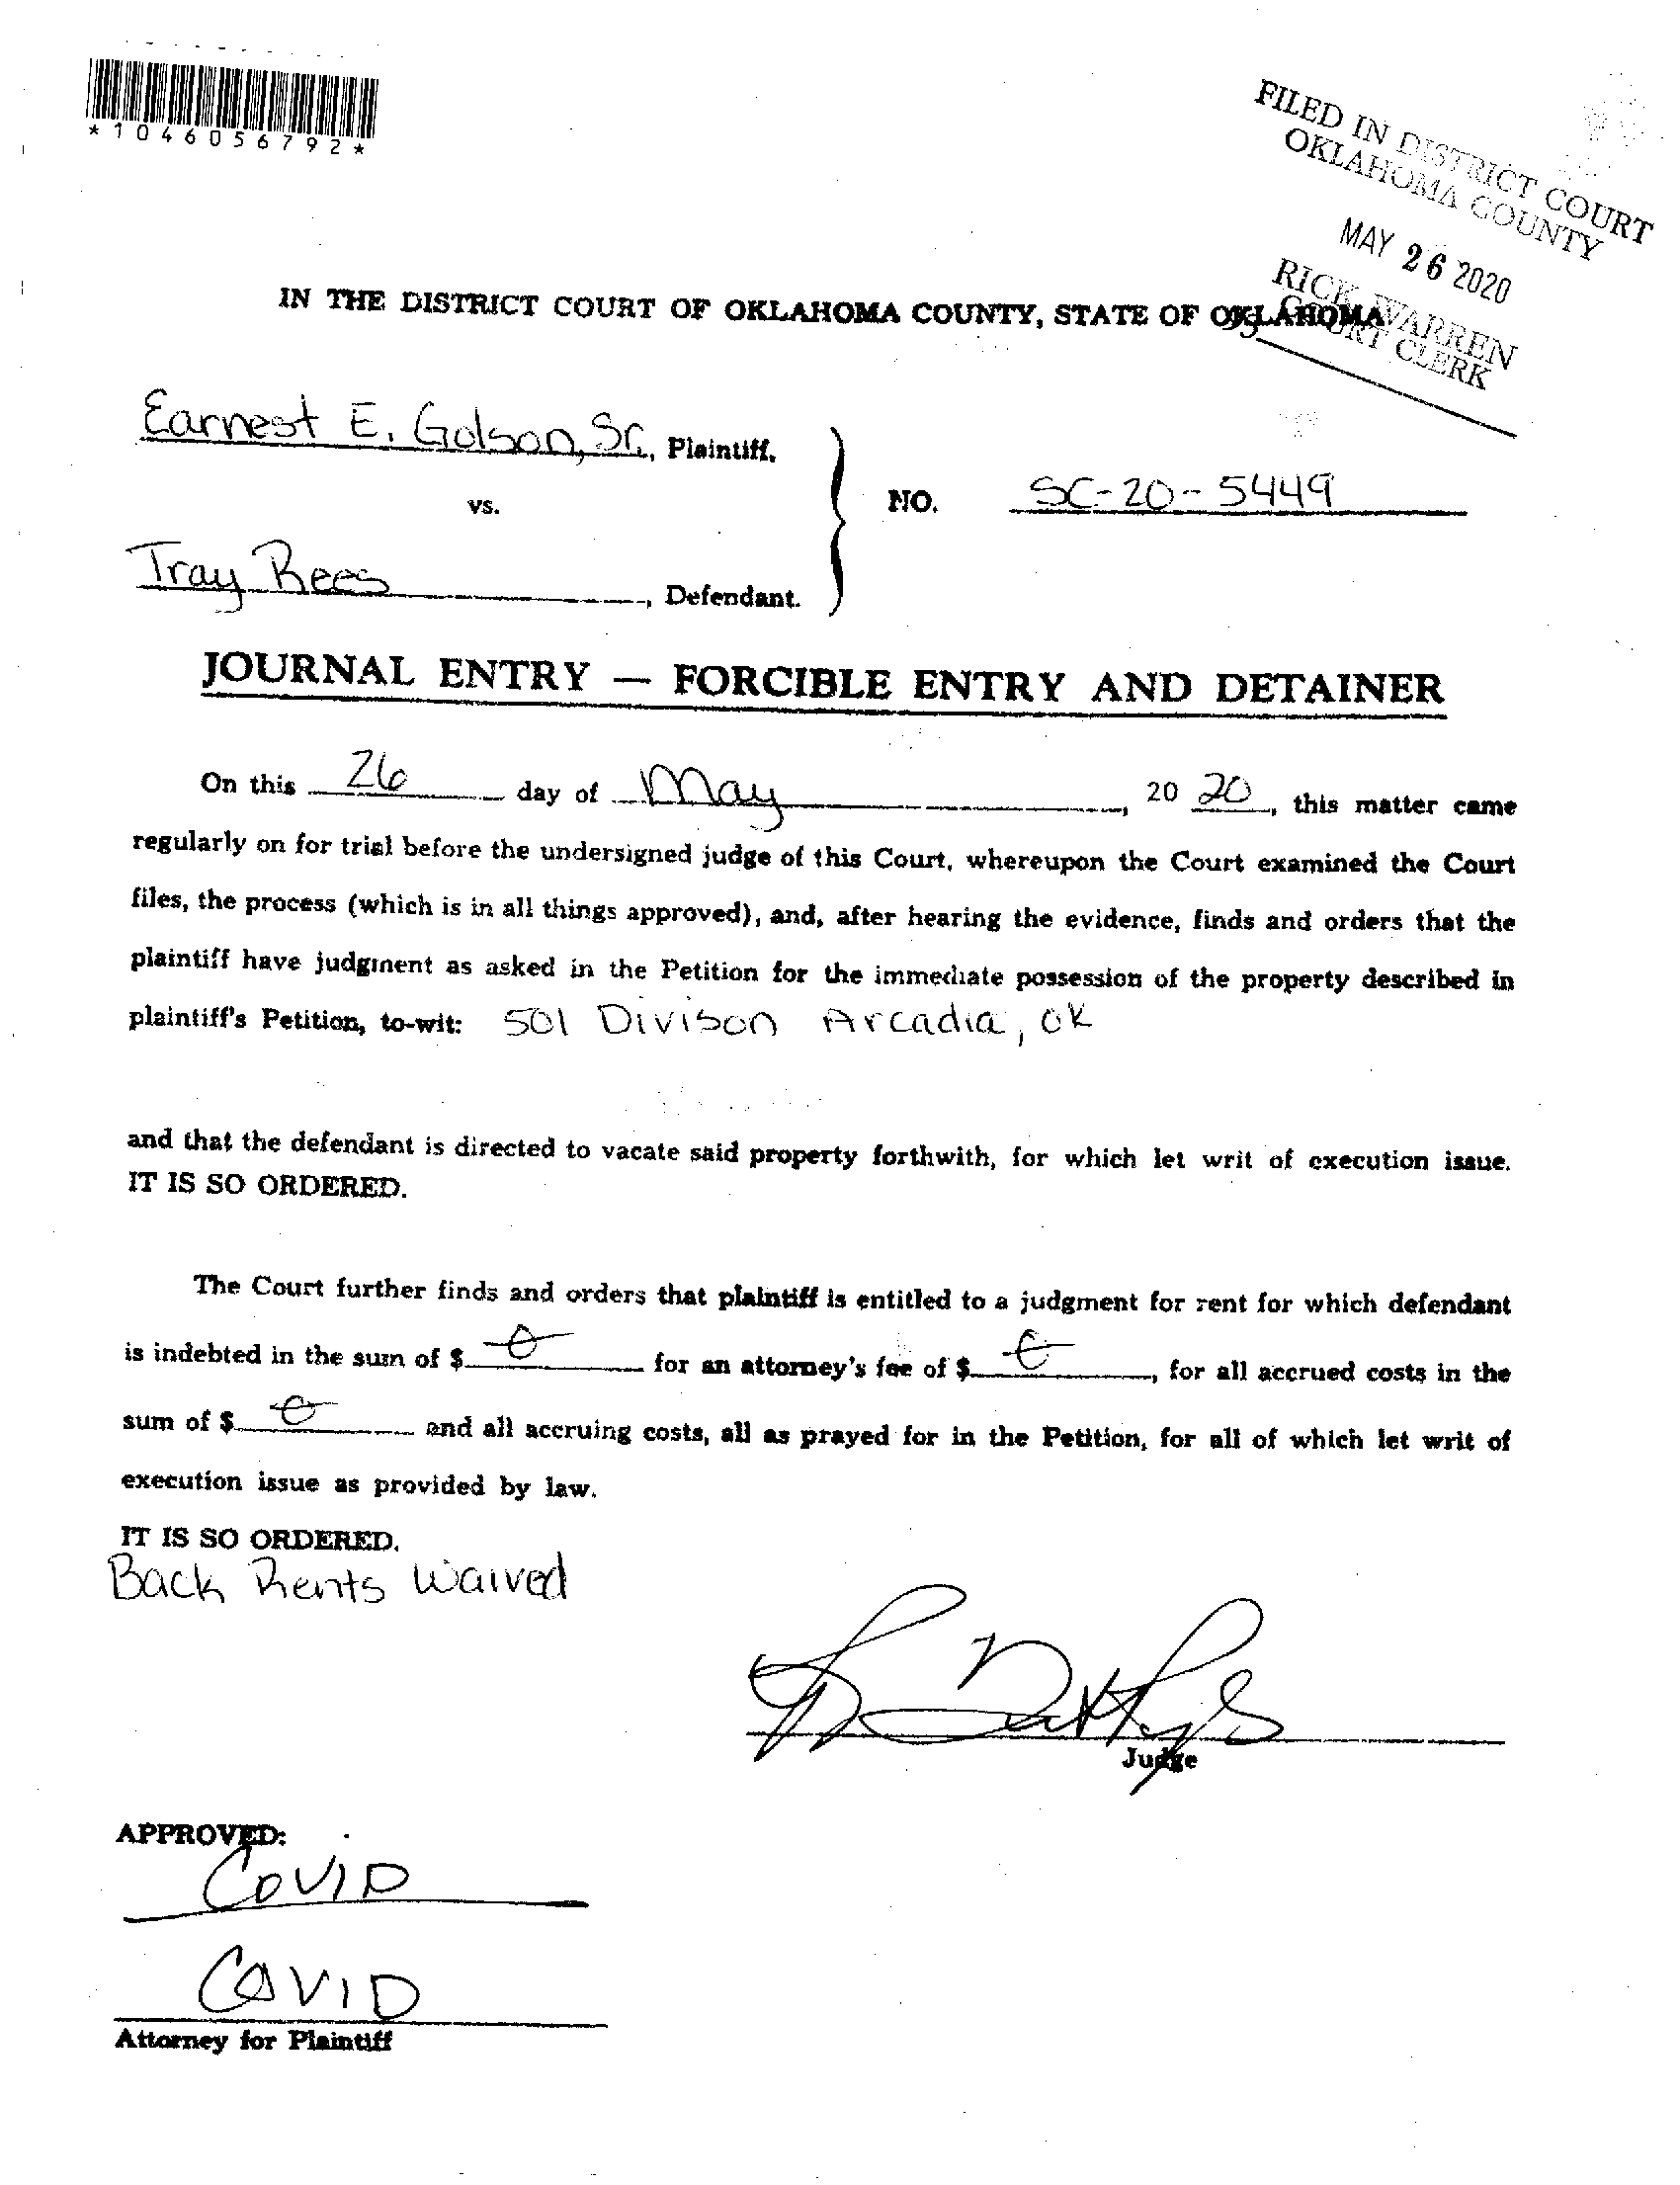 *1046056792*
FILED IN DISTRICT COURT
OKLAHOMA COUNTY
MAY 26 2020
RICK WARREN
COURT CLERK
IN THE DISTRICT COURT OF OKLAHOMA COUNTY, STATE OF OKLAHOMA
Earnest E. Golson, Sr., Plaintiff,
vs.
NO. SC-20-5449
Tray Rees, Defendant.
JOURNAL ENTRY — FORCIBLE ENTRY AND DETAINER
On this 26 day of May, 20 20, this matter came
regularly on for trial before the undersigned judge of this Court, whereupon the Court examined the Court
files, the process (which is in all things approved), and, after hearing the evidence, finds and orders that the
plaintiff have judgment as asked in the Petition for the immediate possession of the property described in
plaintiff's Petition, to-wit: 501 Divison Arcadia, OK
and that the defendant is directed to vacate said property forthwith, for which let writ of execution issue.
IT IS SO ORDERED.
The Court further finds and orders that plaintiff is entitled to a judgment for rent for which defendant
is indebted in the sum of $ 0 for an attorney's fee of $ 0, for all accrued costs in the
sum of $ 0 and all accruing costs, all as prayed for in the Petition, for all of which let writ of
execution issue as provided by law.
IT IS SO ORDERED.
Back Rents Waived
Judge
APPROVED:
COVID
COVID
Attorney for Plaintiff